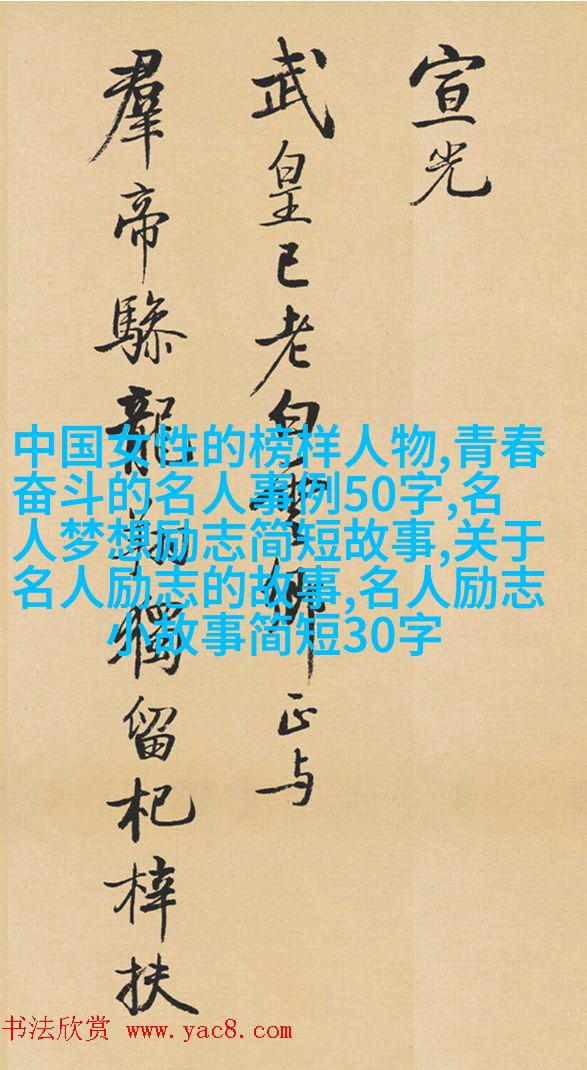 宣光
武皇已老白雲鄉正与
羣帝驂龍翔獨留杞梓扶
中国女性的榜样人物,青春
奋斗的名人事例50字,名
人梦想励志简短故事,关于
名人励志的故事,名人励志
小故事简短30字
书法欣赏 www.yac8.com